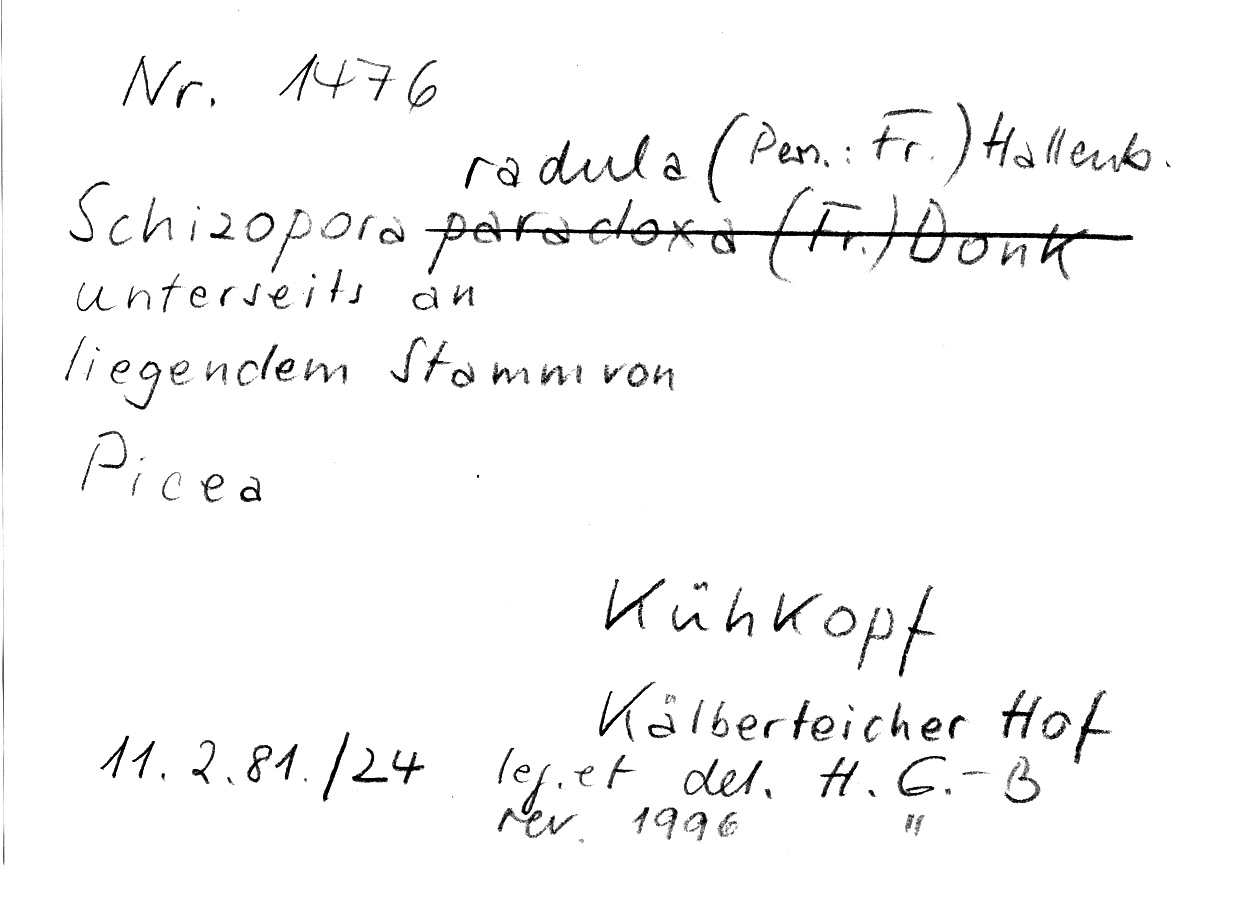 Nr. 1476
radula (Pers.: Fr.) Hallenb.
Schizopora paradoxa (Fr.) Donk
unterseits an
liegendem Stamm von
Picea
Kühkopf
Kälberteicher Hof
11.2.81./24 leg. et det. H. G.-B
rev. 1996 "